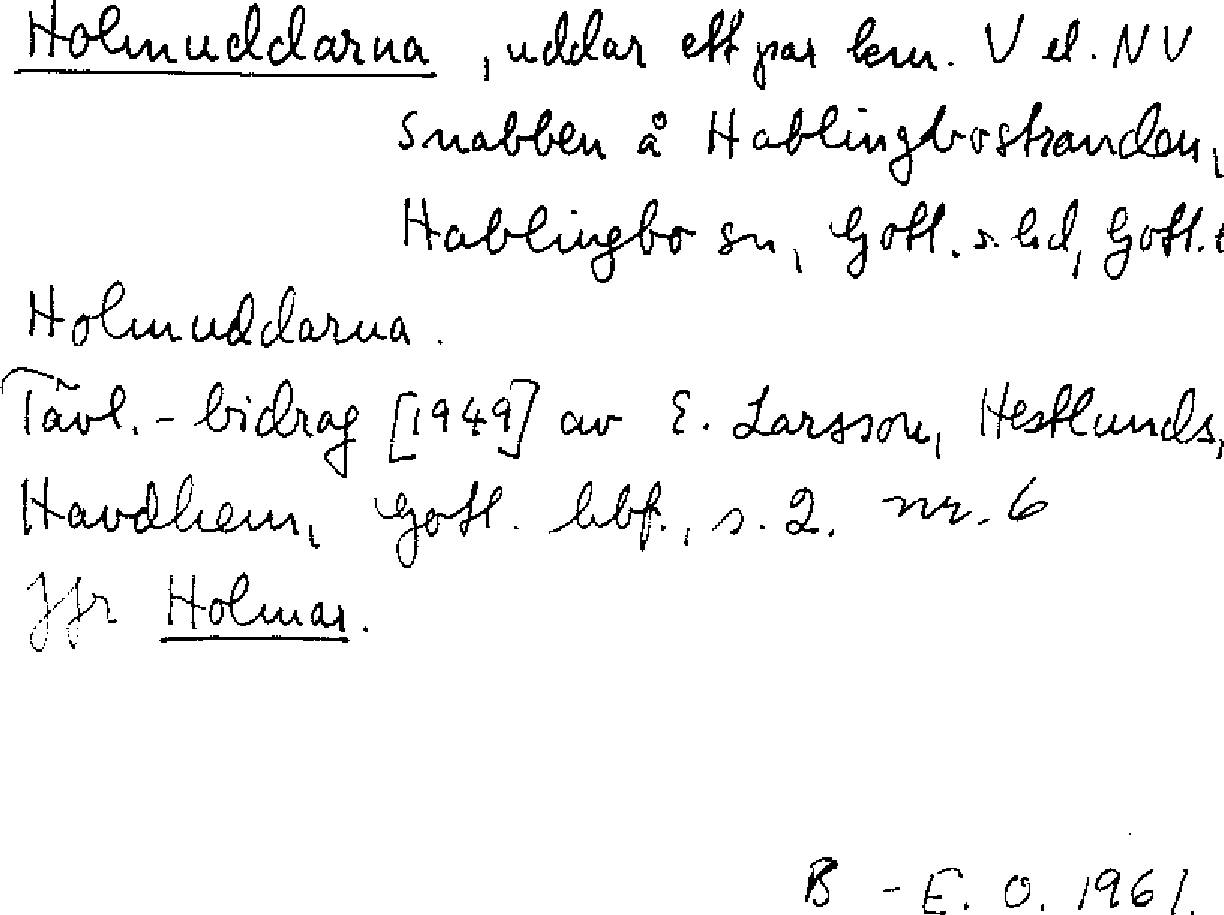 Holmuddarna, uddar ett par km. V el. NV
Snabben å Hablingbostranden,
Hablingbo sn, Gotl. s. hd, Gotl.
Holmuddarna.
Tävl.-bidrag [1949] av E. Larsson, Hestlunds,
Havdhem, Gotl. hbf., s. 2. nr. 6
Jfr Holmar.
B - E. O. 1961.